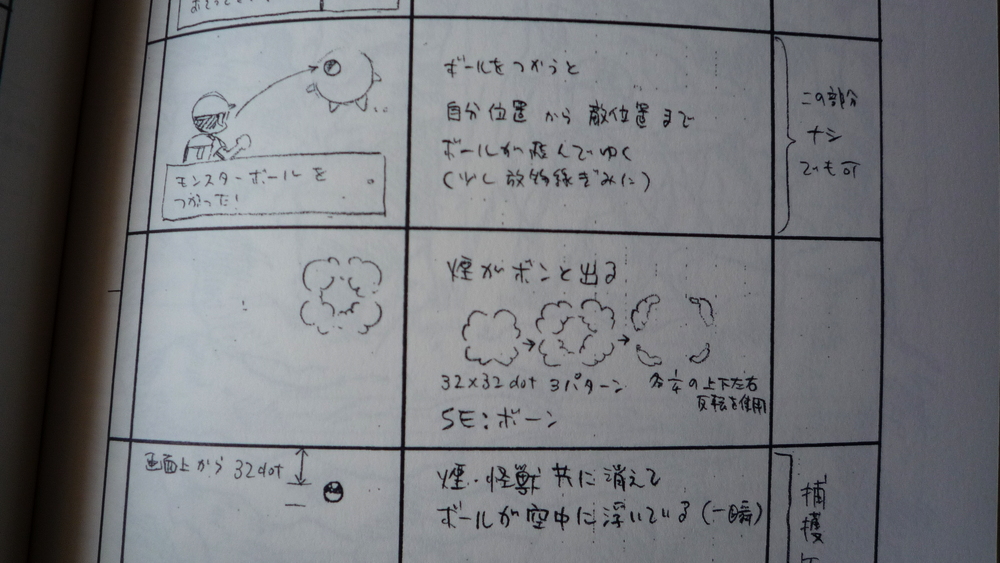 モンスターボールを
つかった!
ボールをつかうと
自分位置から敵位置まで
ボールが飛んでゆく
(少し放物線ぎみに)
この部分
ナシ
でも可
煙がボンと出る
32×32dot 3パターン
各1/4の上下左右
反転を使用
SE:ボーン
画面上から32dot
煙・怪獣共に消えて
ボールが空中に浮いている(一瞬)
捕
獲